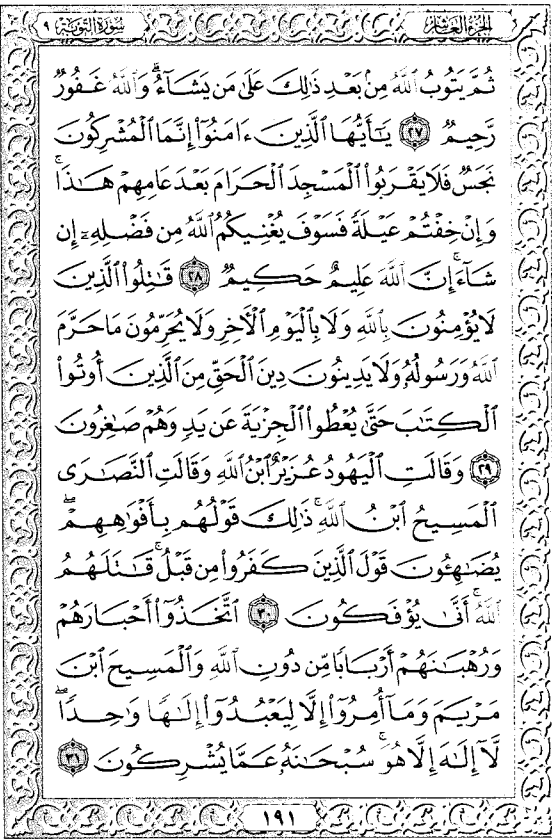 الجزء العاشر
سورة التوبة ٩
ثُمَّ يَتُوبُ ٱللَّهُ مِنۢ بَعْدِ ذَٰلِكَ عَلَىٰ مَن يَشَآءُ ۗ وَٱللَّهُ غَفُورٌ
رَّحِيمٌ ٢٧ يَـٰٓأَيُّهَا ٱلَّذِينَ ءَامَنُوٓا۟ إِنَّمَا ٱلْمُشْرِكُونَ
نَجَسٌ فَلَا يَقْرَبُوا۟ ٱلْمَسْجِدَ ٱلْحَرَامَ بَعْدَ عَامِهِمْ هَـٰذَا ۚ
وَإِنْ خِفْتُمْ عَيْلَةً فَسَوْفَ يُغْنِيكُمُ ٱللَّهُ مِن فَضْلِهِۦٓ إِن
شَآءَ ۚ إِنَّ ٱللَّهَ عَلِيمٌ حَكِيمٌ ٢٨ قَـٰتِلُوا۟ ٱلَّذِينَ
لَا يُؤْمِنُونَ بِٱللَّهِ وَلَا بِٱلْيَوْمِ ٱلْـَٔاخِرِ وَلَا يُحَرِّمُونَ مَا حَرَّمَ
ٱللَّهُ وَرَسُولُهُۥ وَلَا يَدِينُونَ دِينَ ٱلْحَقِّ مِنَ ٱلَّذِينَ أُوتُوا۟
ٱلْكِتَـٰبَ حَتَّىٰ يُعْطُوا۟ ٱلْجِزْيَةَ عَن يَدٍ وَهُمْ صَـٰغِرُونَ
٢٩ وَقَالَتِ ٱلْيَهُودُ عُزَيْرٌ ٱبْنُ ٱللَّهِ وَقَالَتِ ٱلنَّصَـٰرَى
ٱلْمَسِيحُ ٱبْنُ ٱللَّهِ ۖ ذَٰلِكَ قَوْلُهُم بِأَفْوَٰهِهِمْ ۖ
يُضَـٰهِـُٔونَ قَوْلَ ٱلَّذِينَ كَفَرُوا۟ مِن قَبْلُ ۚ قَـٰتَلَهُمُ
ٱللَّهُ ۚ أَنَّىٰ يُؤْفَكُونَ ٣٠ ٱتَّخَذُوٓا۟ أَحْبَارَهُمْ
وَرُهْبَـٰنَهُمْ أَرْبَابًا مِّن دُونِ ٱللَّهِ وَٱلْمَسِيحَ ٱبْنَ
مَرْيَمَ وَمَآ أُمِرُوٓا۟ إِلَّا لِيَعْبُدُوٓا۟ إِلَـٰهًا وَٰحِدًا ۖ
لَّآ إِلَـٰهَ إِلَّا هُوَ ۚ سُبْحَـٰنَهُۥ عَمَّا يُشْرِكُونَ ٣١
١٩١